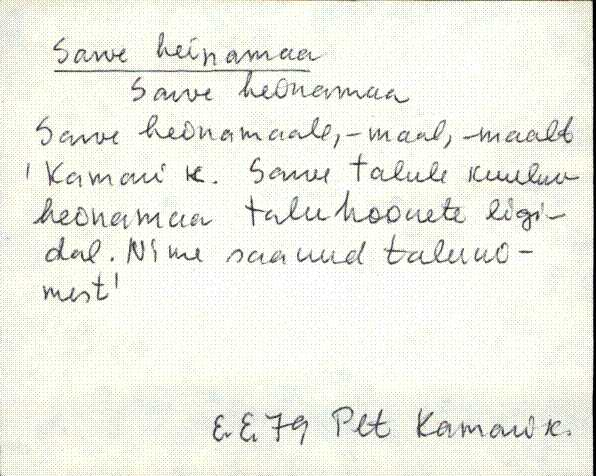 Sarve heinamaa
Sarve heönamaa
Sarve heönamaale, -maal, -maalt
'Kamari k. Sarve talule kuuluv
heönamaa taluhoonete ligi-
dal. Nime saanud talu ni-
mest'
E.E. 79 Plt Kamari k.